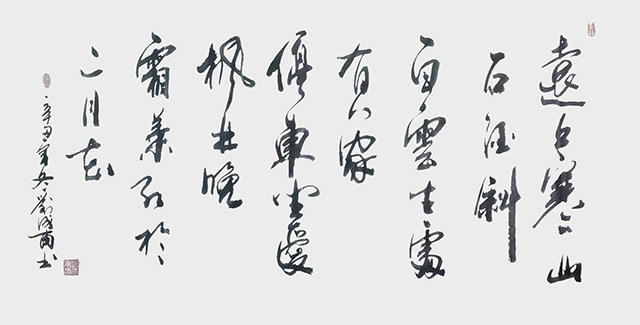 遠上寒山
石径斜
白雲生處
有人家
停車坐愛
枫林晚
霜葉红於
二月花
辛丑年冬劉书